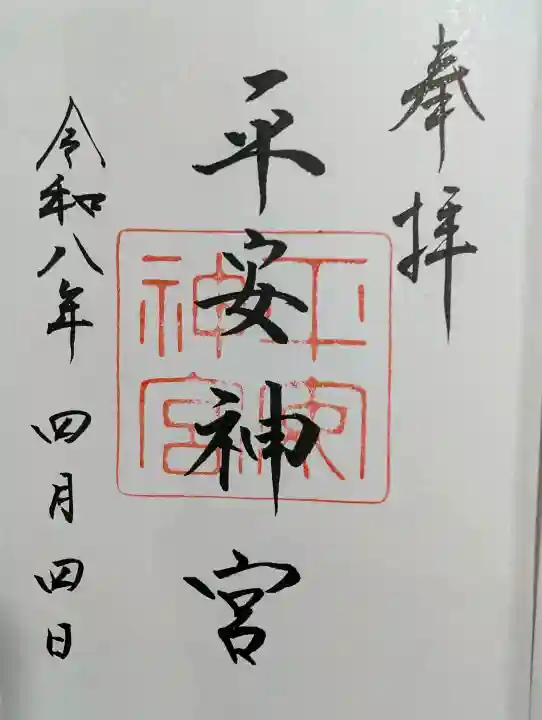 奉拝
平安神宮
平安神宮
令和八年 四月四日